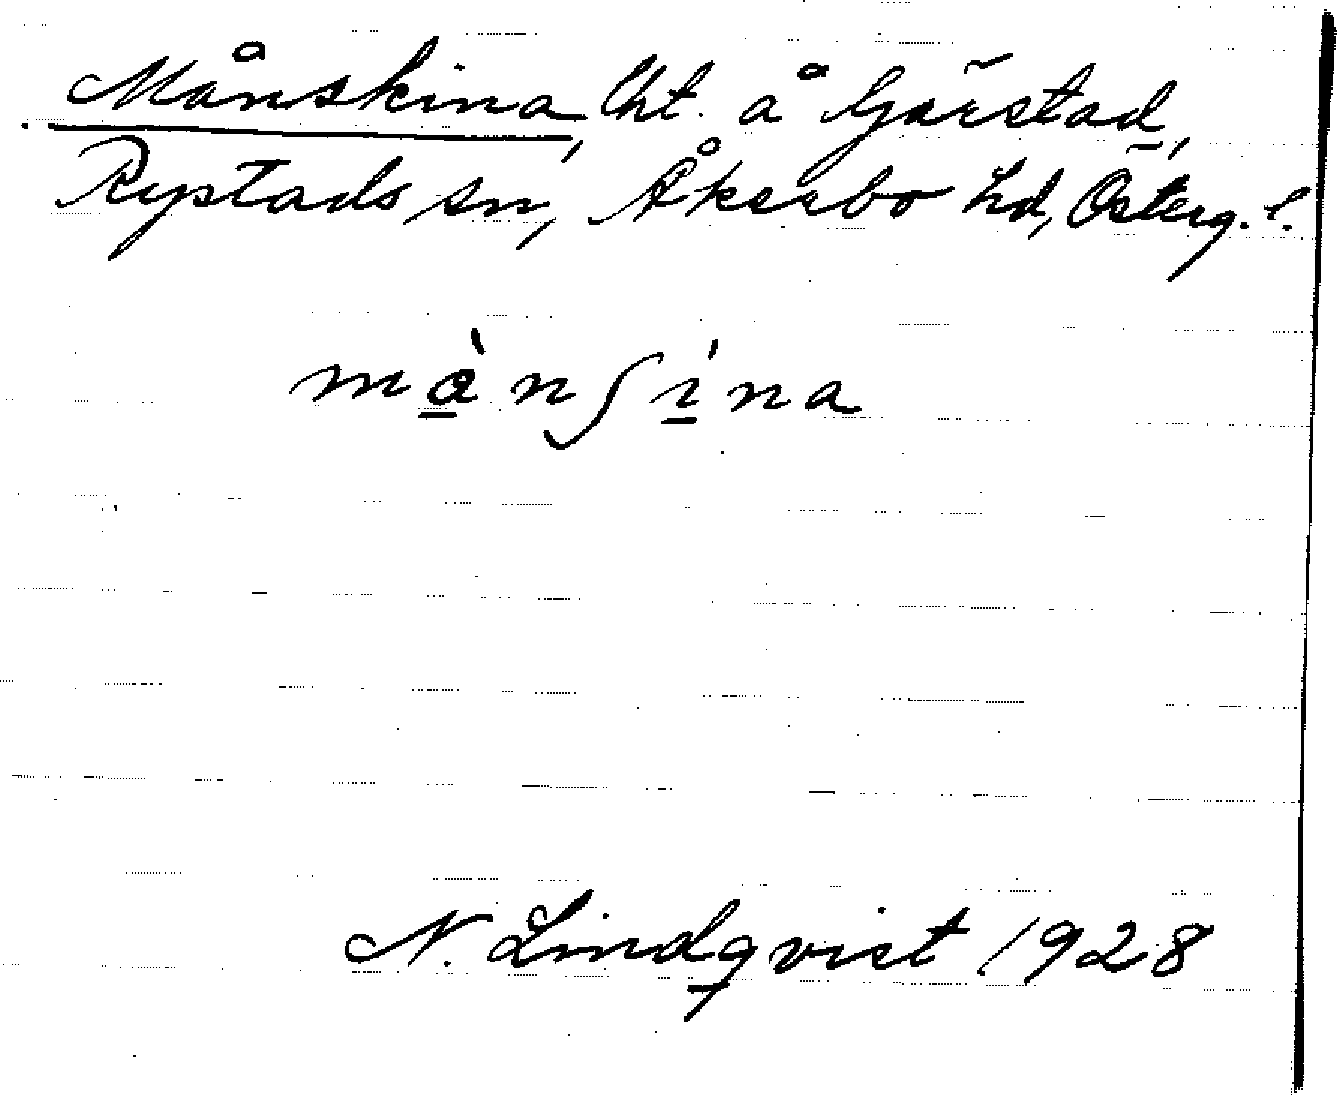 Månskina, lht. å Gärstad,
Rystads sn, Åkerbo hd, Österg. l.
mànʃı́na
N. Lindqvist 1928